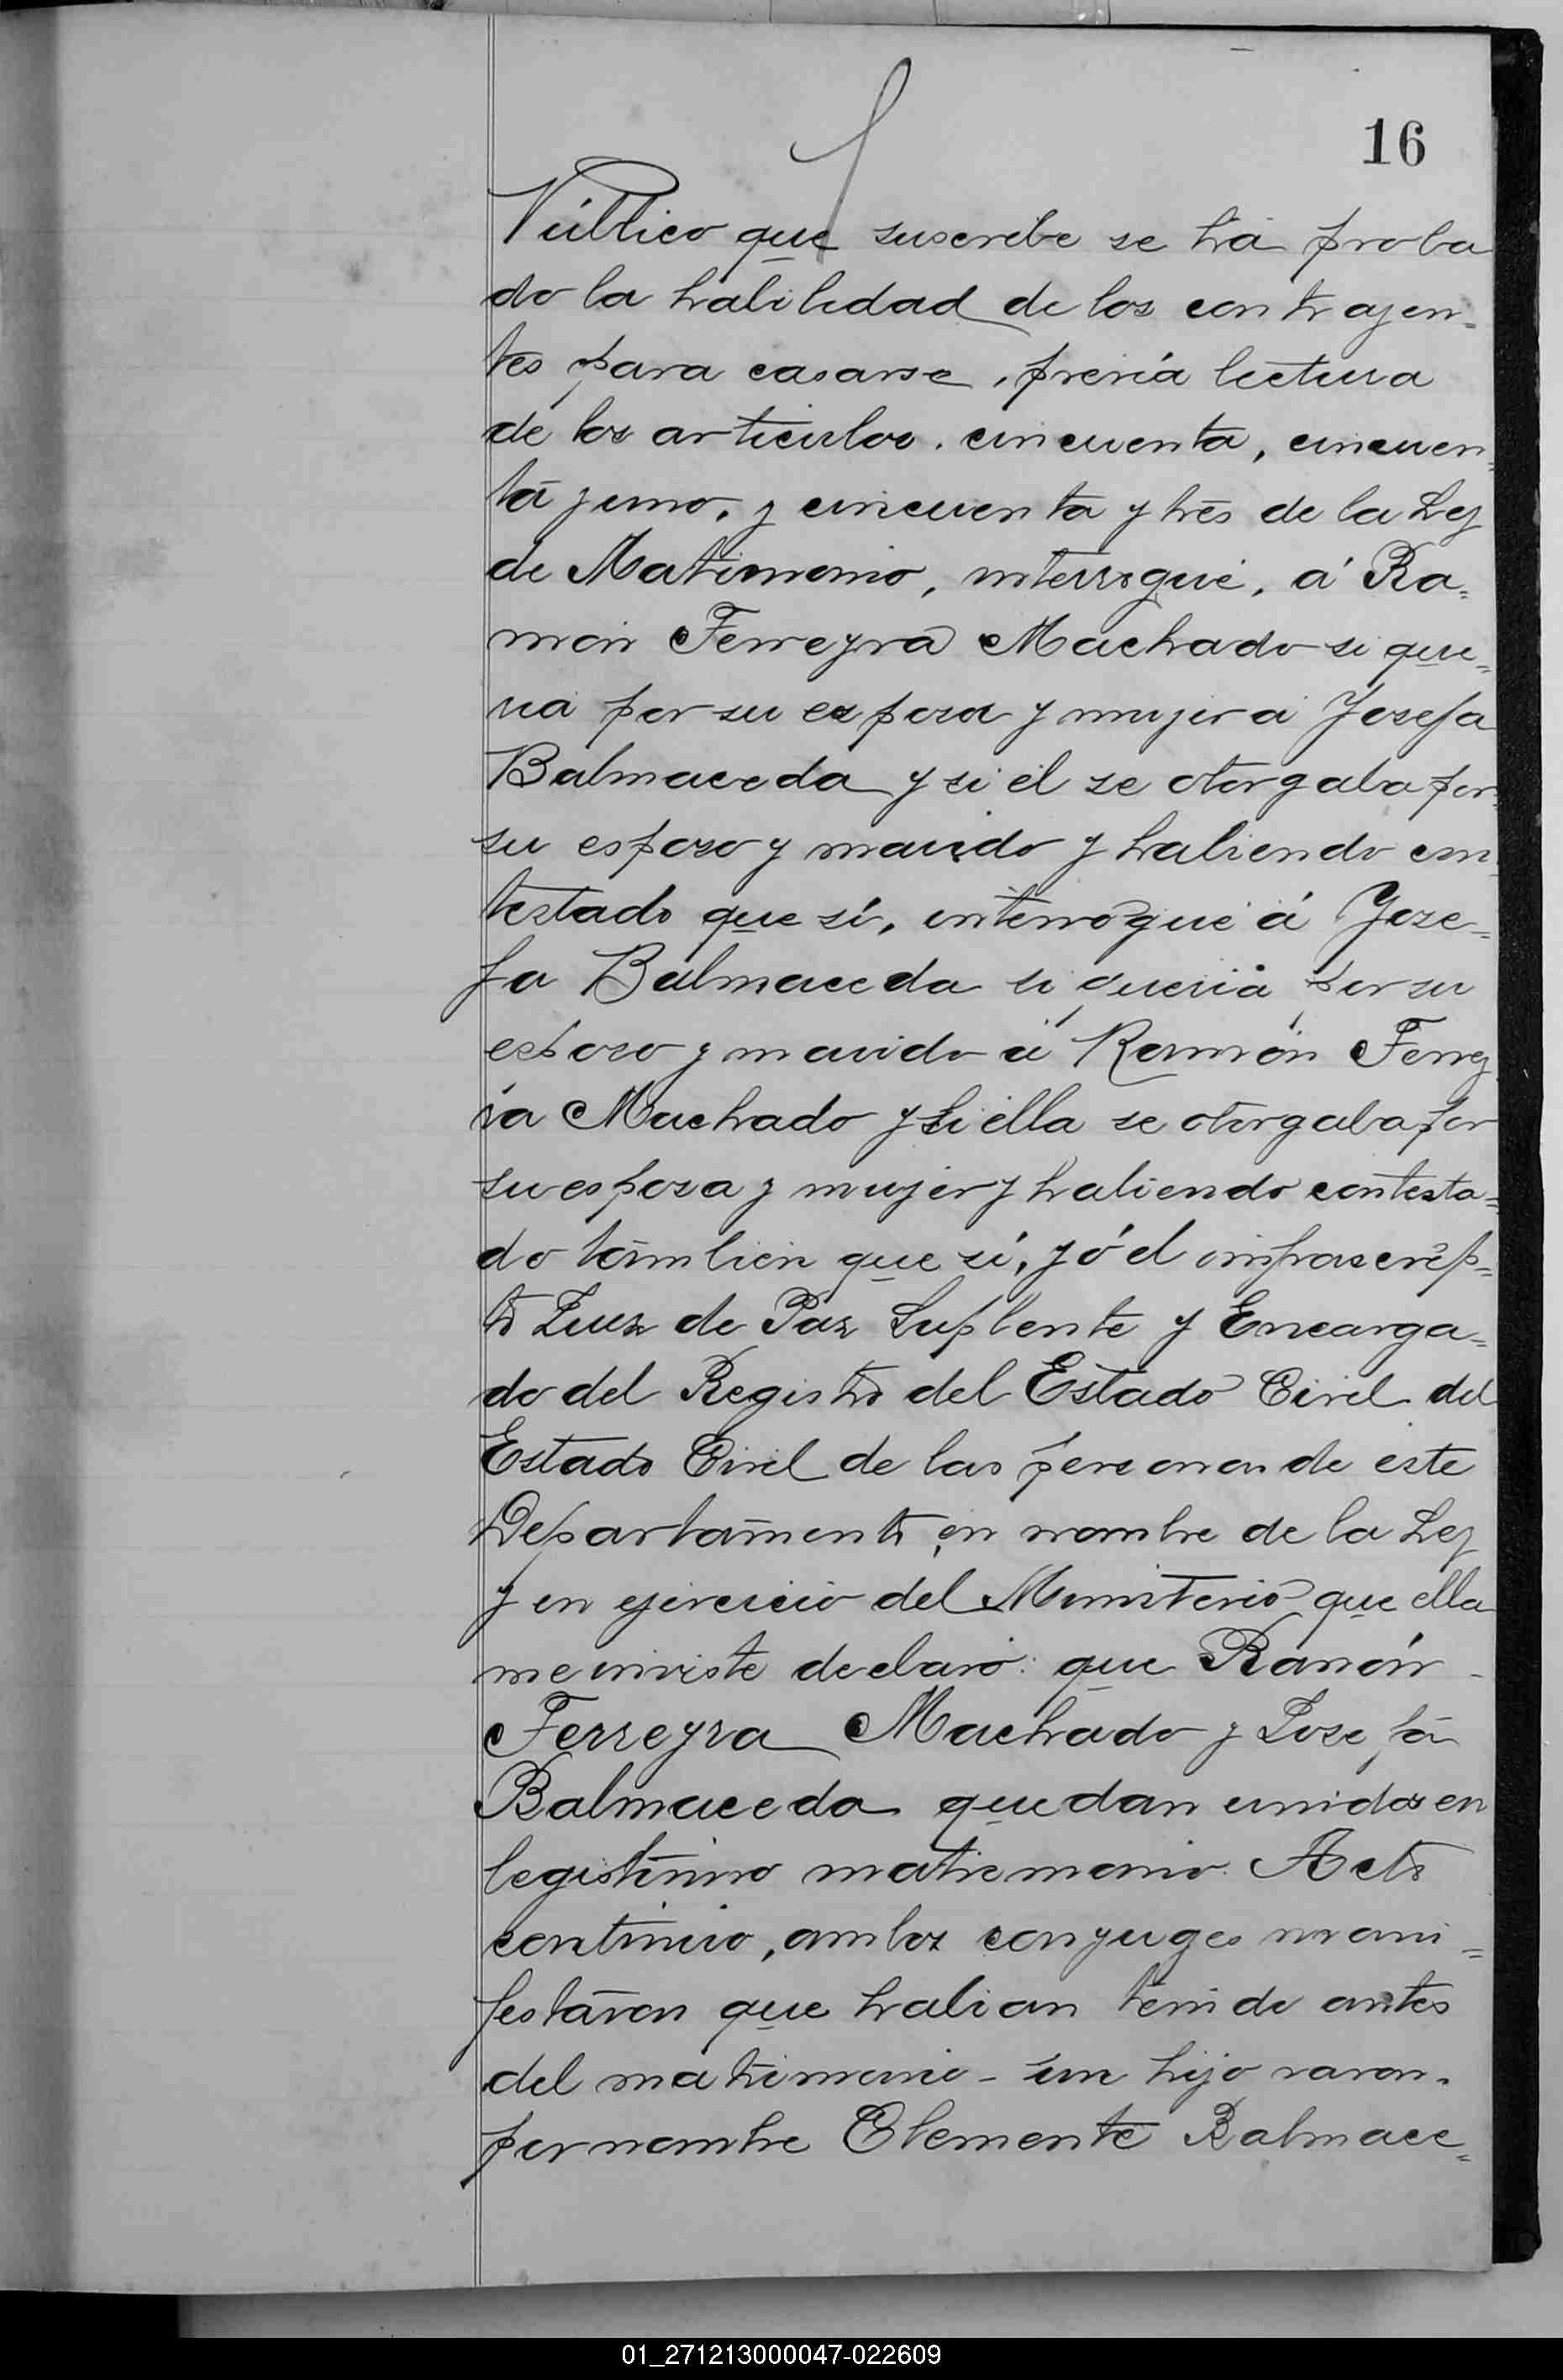 16
Público que suscribe se há proba
do la habilidad de los contrajen=
tes para casarse, previa lectura
de los articulos, cincuenta, cincuen=
ta y uno, y cincuenta y tres de la Ley
de Matrimonio, interrogué, á Ra=
món Ferreyra Machado si que=
ria por su esposa y mujer á Josefa
Balmaceda y si él se otorgaba por
su esposo y marido y habiendo con
testado que sí, interrogué á Jose=
fa Balmaceda si queria por su
esposo y marido á Ramón Ferrey
ra Machado y si ella se otorgaba por
su esposa y mujer y habiendo contesta=
do tambien que sí, yó el infrascrip=
to Juez de Paz Suplente y Encarga=
do del Registro del Estado Civil del
Estado Civil de las personas de este
Departamento en nombre de la Ley
y en ejercicio del Ministerio que ella
me inviste declaro: que Ramón
Ferreyra Machado y Josefa
Balmaceda quedan unidos en
legistimo matrimonio. Acto
continuo, ambos conyuges mani=
festaron que habian tenido antes
del matrimonio - un hijo varon.
por nombre Clemente Balmace=
01_271213000047-022609